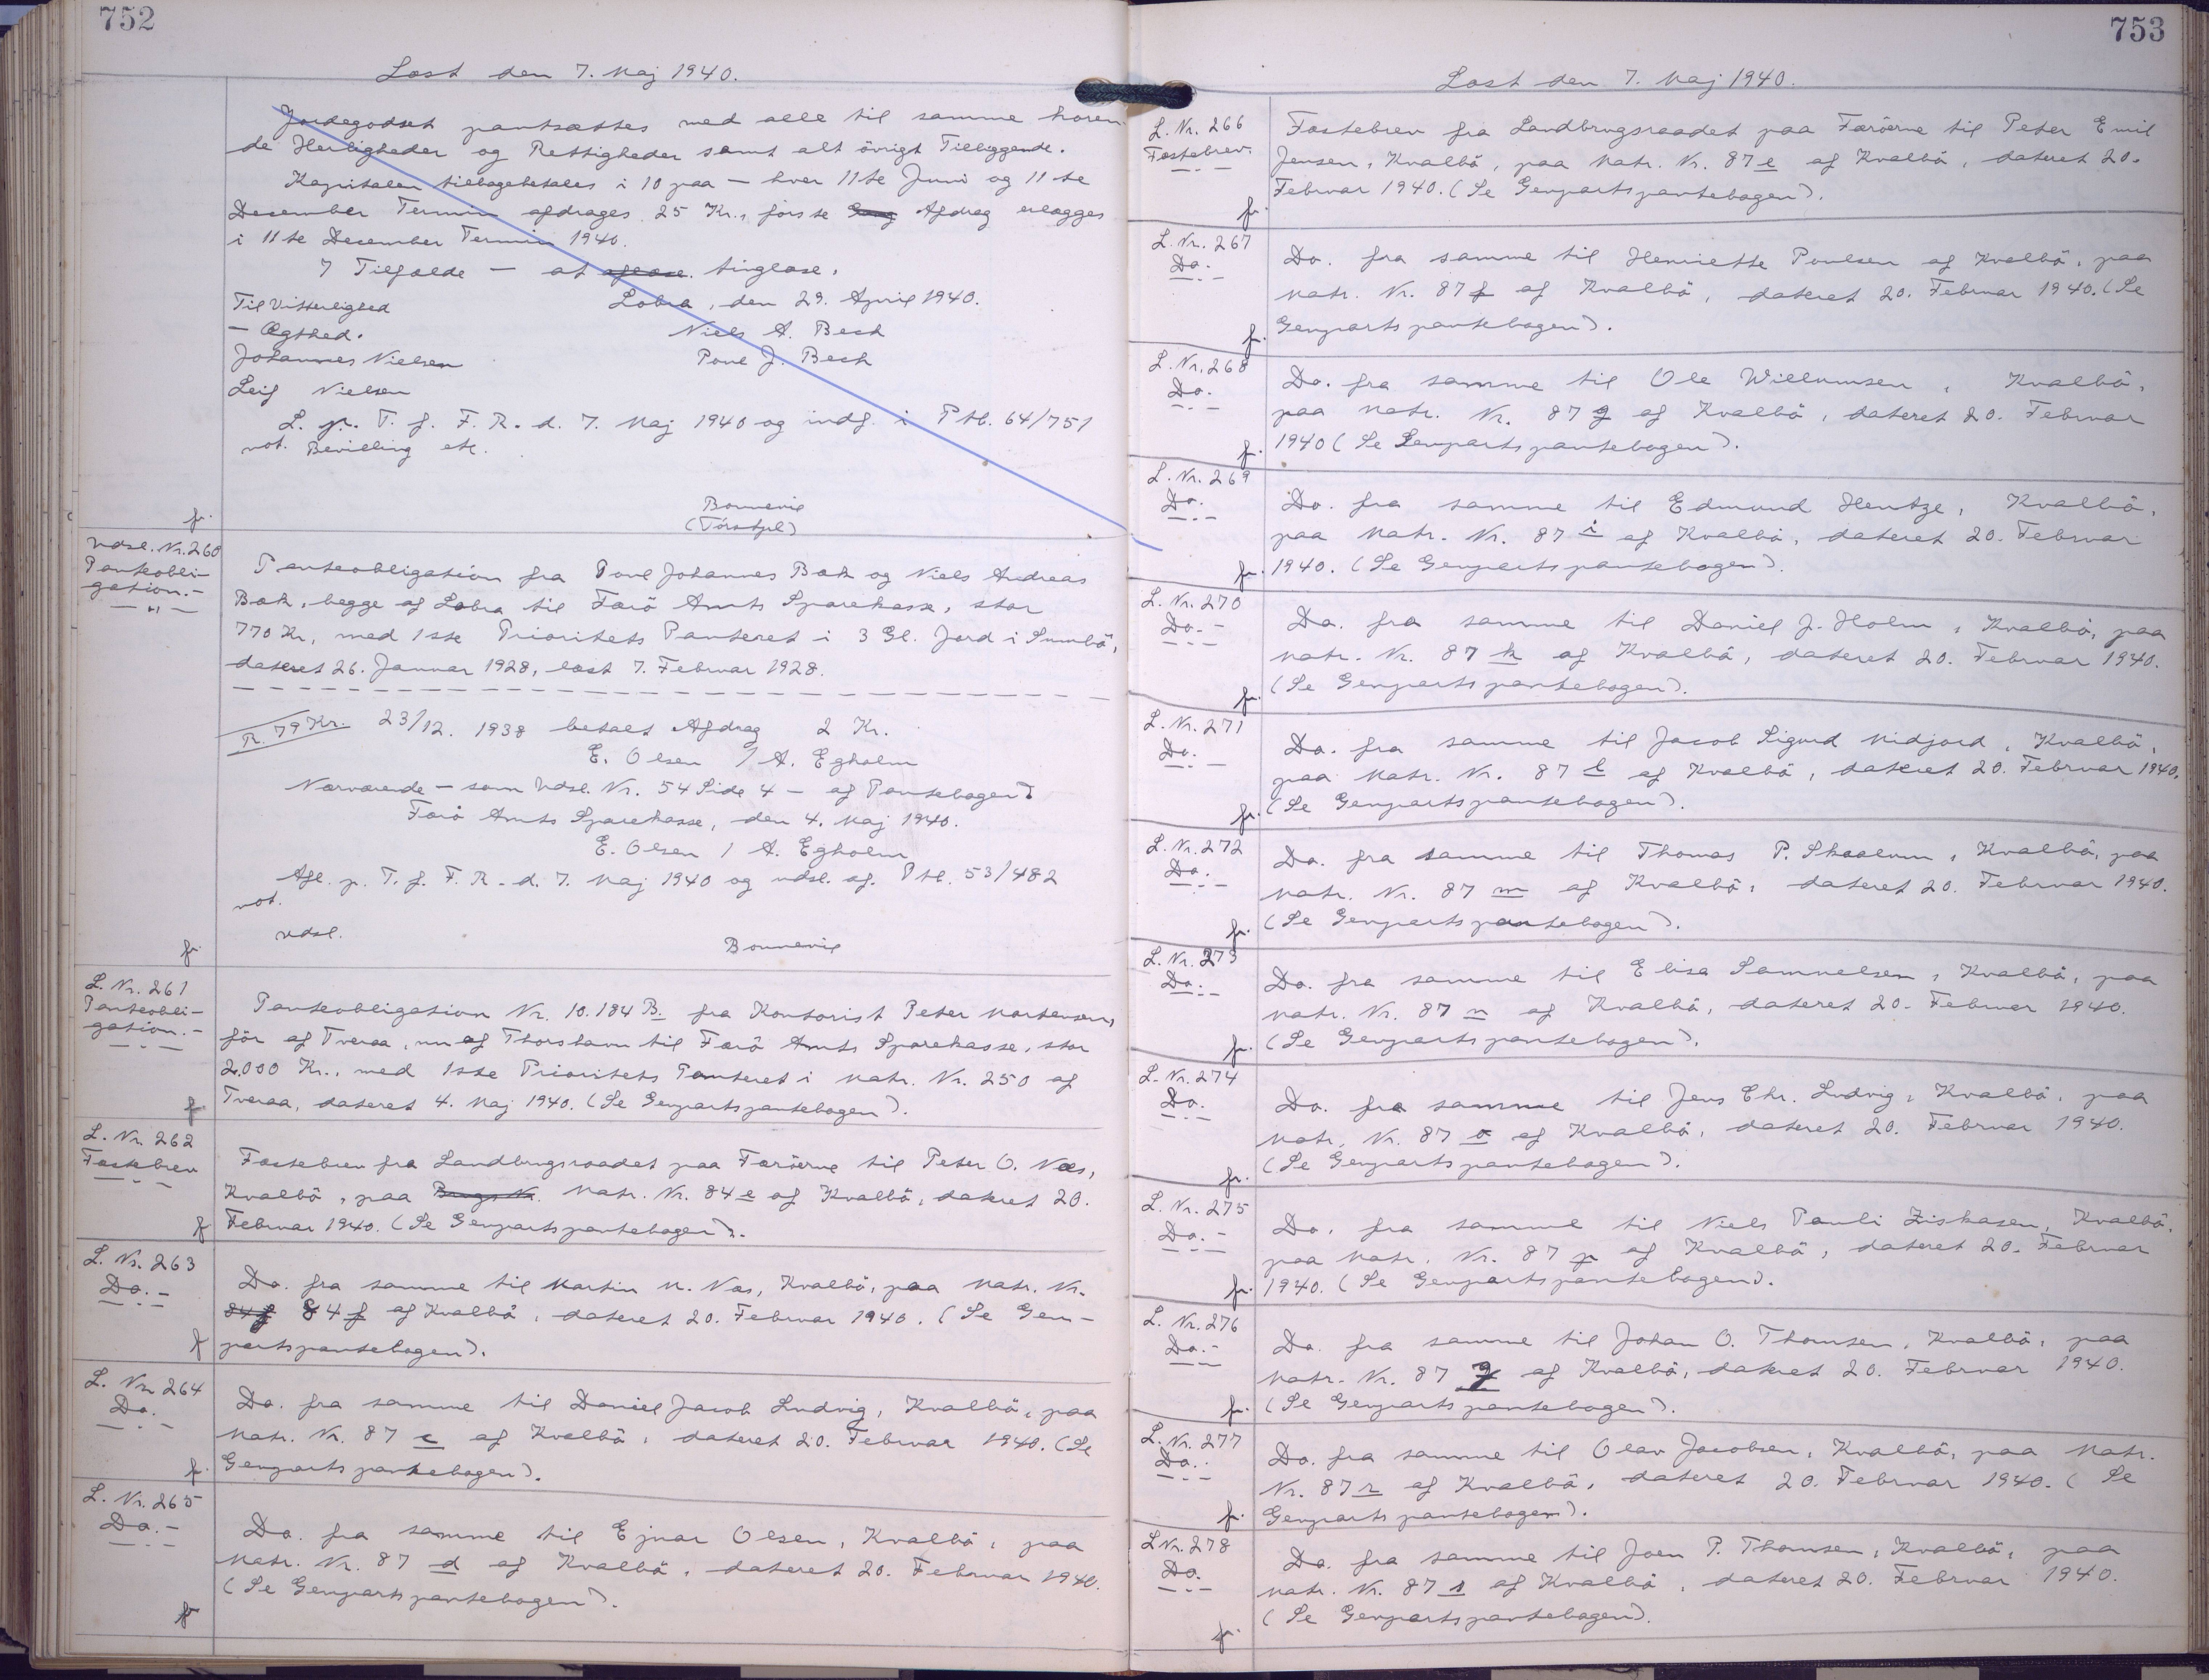 752
Læst den 7. Maj 1940.
Jordegodset pantsættes med alle til samme høren-
de Herligheder og Rettigheder samt alt övrigt Tilliggende.
Kapitalen tilbagebetales i 10 paa — hver 11te Juni og 11te
December Termin afdrages 25 Kr., förste Gang Afdrag erlægges
i 11te December Termin 1940.
I Tilfælde — at aflæse. tinglæse.
Til Vitterlighed
Lobra, den 29. April 1940.
— Ægthed.
Niels A. Bech
Johannes Nielsen
Poul J. Bech
Leif Nielsen
L. p. T. f. F. R. d. 7. Maj 1940 og indf. i Ptb. 64/751
not. Bevilling etc.
Bonnevie
(Törstfpl)
fr.
Udsl. Nr. 260
Panteobli-
gation.-
Panteobligation fra Poul Johannes Bæk og Niels Andreas
Bæk, begge af Lobra til Færö Amts Sparekasse, stor
770 Kr, med 1ste Prioritets Panteret i 3 Gl. Jord i Sumbö,
dateret 26. Januar 1928, læst 7. Februar 1928.
R. 79 Kr. 23/12. 1938 betalt Afdrag 2 Kr.
E. Olsen / A. Egholm
Nærværende — som Udsl. Nr. 54 Side 4 — af Pantebogen
Færö Amts Sparekasse, den 4. Maj 1940.
E. Olsen / A. Egholm
Afl. p. T. f. F. R. d. 7. Maj 1940 og udsl. af. Ptb. 53/482
not.
udsl.
Bonnevie
fr.
L. Nr. 261
Panteobli-
gation.-
Panteobligation Nr. 10.184 B. fra Kontorist Peter Mortensen,
för af Tveraa, nu af Thorshavn til Færö Amts Sparekasse, stor
2.000 Kr., med 1ste Prioritets Panteret i Matr. Nr. 250 af
Tveraa, dateret 4. Maj 1940. (Se Genpartspantebogen).
f
L. Nr. 262
Fæstebrev
Fæstebrev fra Landbrugsraadet paa Færöerne til Peter O. Næs,
Kvalbö, paa Brugs Nr. Matr. Nr. 84 e af Kvalbö, dateret 20.
Februar 1940. (Se Genpartspantebogen).
f
L. Nr. 263
Do.-
Do. fra samme til Martin M. Næs, Kvalbö, paa Matr. Nr.
84 f 84 f af Kvalbö, dateret 20. Februar 1940. (Se Gen-
partspantebogen).
f
L. Nr. 264
Do.
Do. fra samme til Daniel Jacob Ludvig, Kvalbö, paa
Matr. Nr. 87 c af Kvalbö, dateret 20. Februar 1940. (Se
Genpartspantebogen).
f.
L. Nr. 265
Do.-
Do. fra samme til Ejnar Olsen, Kvalbö, paa
Matr. Nr. 87 d af Kvalbö, dateret 20. Februar 1940.
(Se Genpartspantebogen).
fr
753
Læst den 7. Maj 1940.
L. Nr. 266
Fæstebrev.
Fæstebrev fra Landbrugsraadet paa Færöerne til Peter Emil
Jensen, Kvalbö, paa Matr. Nr. 87 e af Kvalbö, dateret 20.
Februar 1940. (Se Genpartspantebogen).
fr.
L. Nr. 267
Do.
Do. fra samme til Henriette Poulsen af Kvalbö, paa
Matr. Nr. 87 f af Kvalbö, dateret 20. Februar 1940. (Se
Genpartspantebogen).
fr.
L. Nr. 268
Do.
Do. fra samme til Ole Willumsen, Kvalbö,
paa Matr. Nr. 87 g af Kvalbö, dateret 20. Februar
1940 (Se Genpartspantebogen).
fr.
L. Nr. 269
Do.
Do. fra samme til Edmund Hentze, Kvalbö,
paa Matr. Nr. 87 i af Kvalbö, dateret 20. Februar
1940. (Se Genpartspantebogen).
fr.
L. Nr. 270
Do.-
Do. fra samme til Daniel J. Holm, Kvalbö, paa
Matr. Nr. 87 k af Kvalbö, dateret 20. Februar 1940.
(Se Genpartspantebogen).
fr.
L. Nr. 271
Do.
Do. fra samme til Jacob Sigurd Nidjord, Kvalbö,
paa Matr. Nr. 87 l af Kvalbö, dateret 20. Februar 1940.
(Se Genpartspantebogen).
fr.
L. Nr. 272
Do.
Do. fra samme til Thomas P. Skaalum, Kvalbö, paa
Matr. Nr. 87 m af Kvalbö, dateret 20. Februar 1940.
(Se Genpartspantebogen).
fr.
L. Nr. 273
Do.
Do. fra samme til Elisa Samuelsen, Kvalbö, paa
Matr. Nr. 87 n af Kvalbö, dateret 20. Februar 1940.
(Se Genpartspantebogen).
fr.
L. Nr. 274
Do.
Do. fra samme til Jens Chr. Ludvig, Kvalbö, paa
Matr. Nr. 87 o af Kvalbö, dateret 20. Februar 1940.
(Se Genpartspantebogen).
fr.
L. Nr. 275
Do.-
Do. fra samme til Niels Pauli Ziskasen, Kvalbö,
paa Matr. Nr. 87 p af Kvalbö, dateret 20. Februar
1940. (Se Genpartspantebogen).
fr.
L. Nr. 276
Do.-
Do. fra samme til Johan O. Thomsen, Kvalbö, paa
Matr. Nr. 87 q af Kvalbö, dateret 20. Februar 1940.
(Se Genpartspantebogen).
fr.
L. Nr. 277
Do.
Do. fra samme til Olav Jacobsen, Kvalbö, paa Matr.
Nr. 87 r af Kvalbö, dateret 20. Februar 1940. (Se
Genpartspantebogen).
fr.
L. Nr. 278
Do.
Do. fra samme til Joen P. Thomsen, Kvalbö, paa
Matr. Nr. 87 s af Kvalbö, dateret 20. Februar 1940.
(Se Genpartspantebogen).
fr.